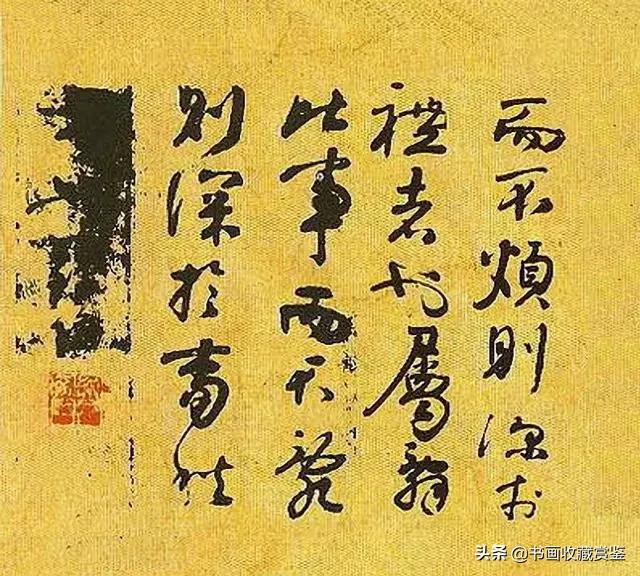 而不煩則深於
禮者也屬辭
比事而不亂
則深於春秋
头条 @书画收藏赏鉴